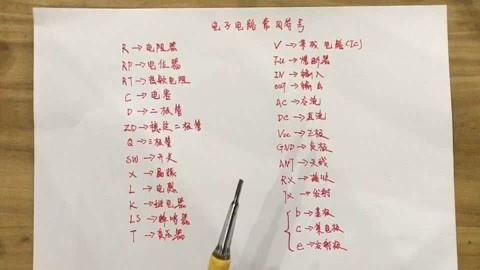 电子电路常用符号
R→电阻器
RP→电位器
RT→热敏电阻
C→电容
D→二极管
ZD→稳压二极管
Q→三极管
SW→开关
X→晶振
L→电感
K→继电器
LS→蜂鸣器
T→变压器
V→集成电路(IC)
FU→熔断器
IN→输入
OUT→输出
AC→交流
DC→直流
Vcc→正极
GND→负极
ANT→天线
RX→接收
TX→发射
b→基极
c→集电极
e→发射极